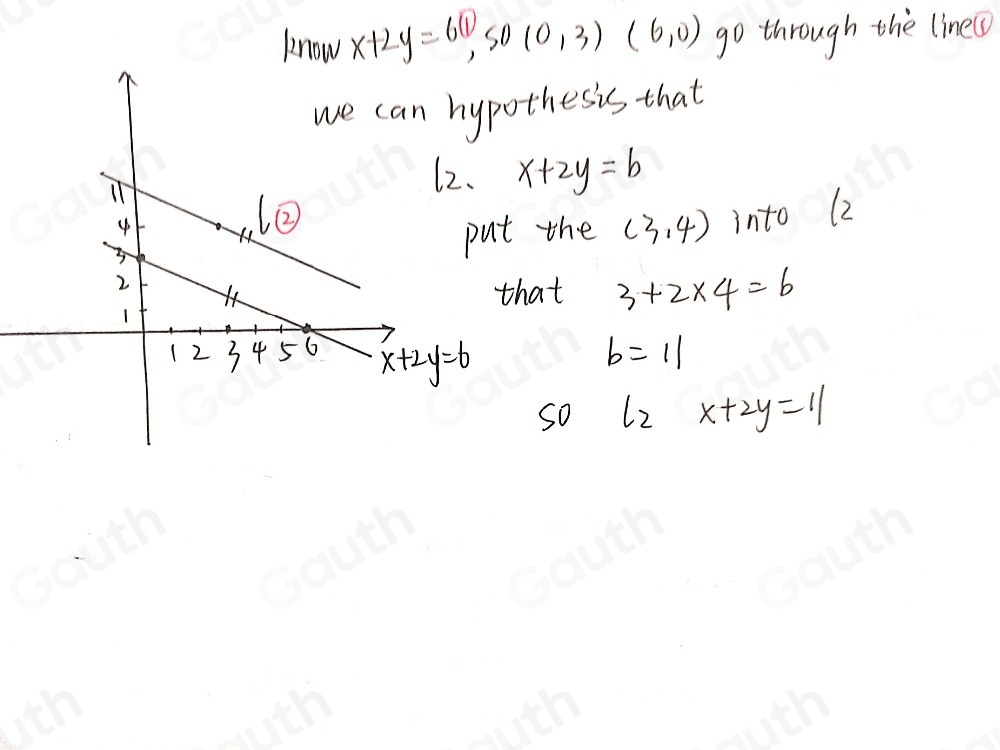 know x+2y=6①, so (0,3) (6,0) go through the line①
we can hypothesis that
l2、 x+2y=b
put the (3,4) into l2
that 3+2×4=b
b=11
so l2 x+2y=11
11
4
3
2
1
1 2 3 4 5 6
l②
x+2y=6
Gauth